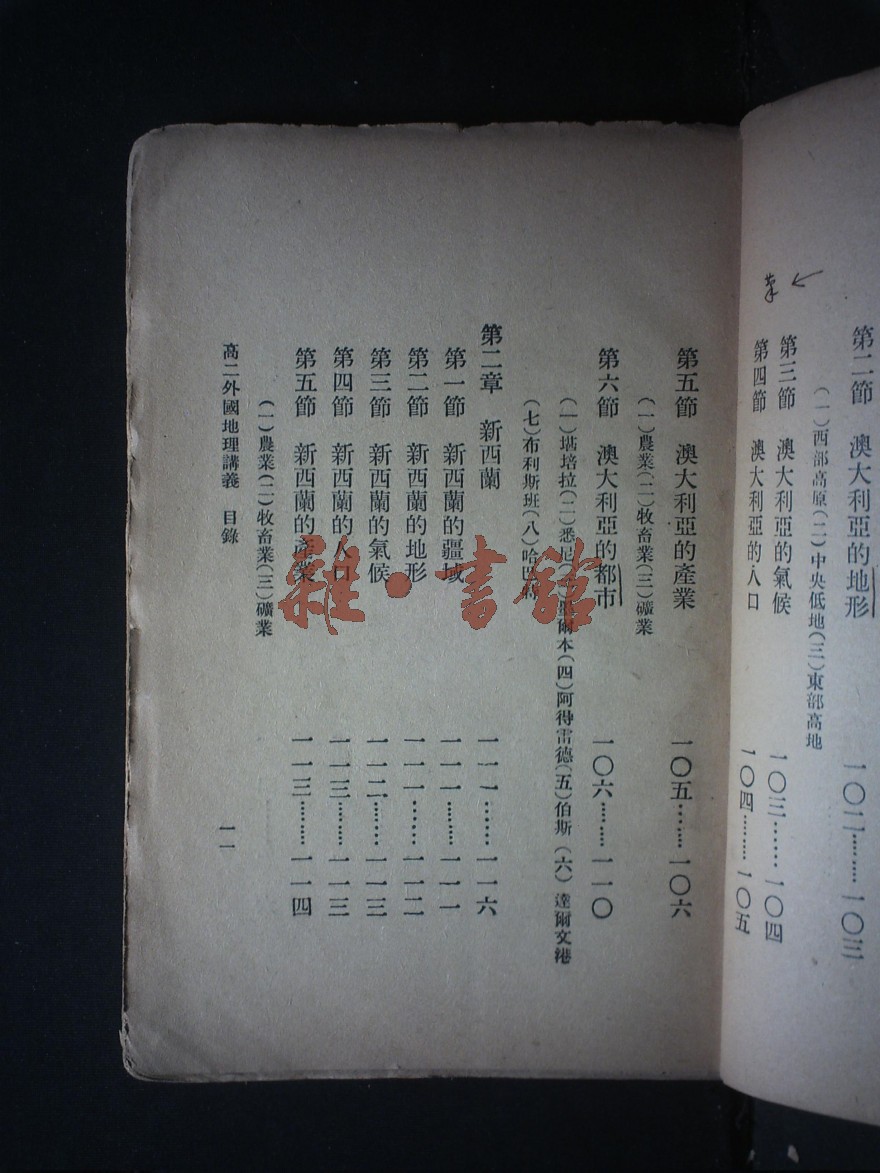 第二節　澳大利亞的地形　一〇二………一〇三
(一)西部高原(二)中央低地(三)東部高地
第三節　澳大利亞的氣候　一〇三………一〇四
第四節　澳大利亞的人口　一〇四………一〇五
第五節　澳大利亞的產業　一〇五………一〇六
(一)農業(二)牧畜業(三)礦業
第六節　澳大利亞的都市　一〇六………一一〇
(一)堪培拉(二)悉尼(三)爾本(四)阿得雷德(五)伯斯(六)達爾文港
(七)布利斯班(八)哈
第二章　新西蘭　一一一………一一六
第一節　新西蘭的疆域　一一一………一一一
第二節　新西蘭的地形　一一一………一一二
第三節　新西蘭的氣候　一一二………一一三
第四節　新西蘭的人口　一一三………一一三
第五節　新西蘭的產業　一一三………一一四
(一)農業(二)牧畜業(三)礦業
高二外國地理講義　目錄　一一
雜·書館